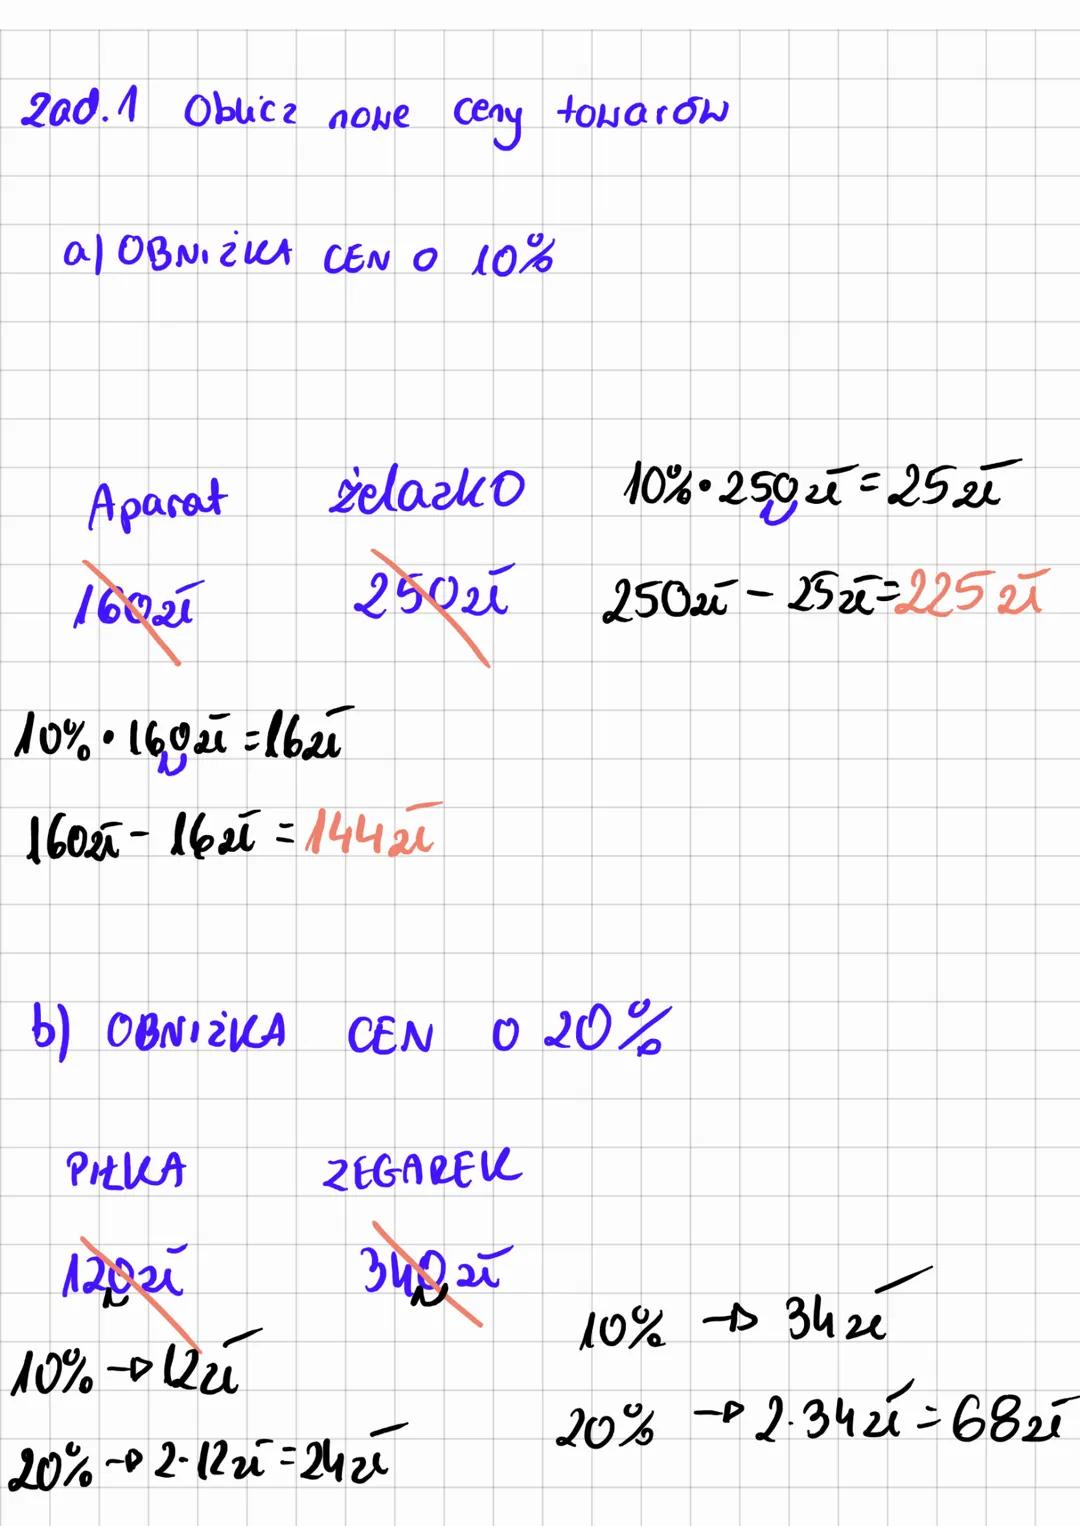 Zad.1 Oblicz nowe ceny towarów
a) OBNIŻKA CEN O 10%
Aparat
160zł
10% • 160zł = 16zł
160zł - 16zł = 144zł
żelazko
250zł
10% • 250zł = 25zł
250zł - 25zł = 225zł
b) OBNIŻKA CEN O 20%
PIŁKA
120zł
10% → 12zł
20% → 2·12zł = 24zł
ZEGAREK
340zł
10% → 34zł
20% → 2·34zł = 68zł